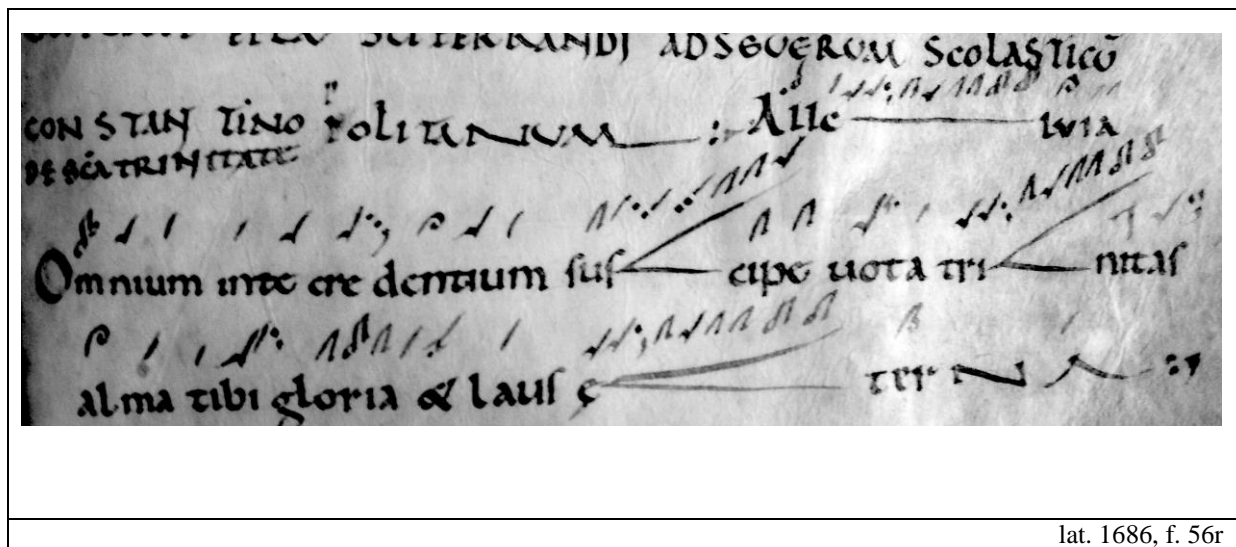 FERRANDI ADSEUERUM SCOLASTICŪ
CONSTAN TINO POLITANUM :- Alle luia
DE SCA TRINITATE
Omnium inte cre dentium sus cipe uota tri nitas
alma tibi gloria & laus ę ter NA :,
lat. 1686, f. 56r